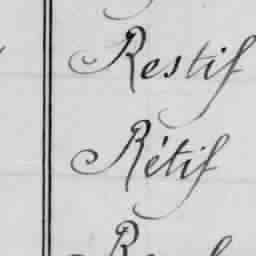 Restif
Rétif